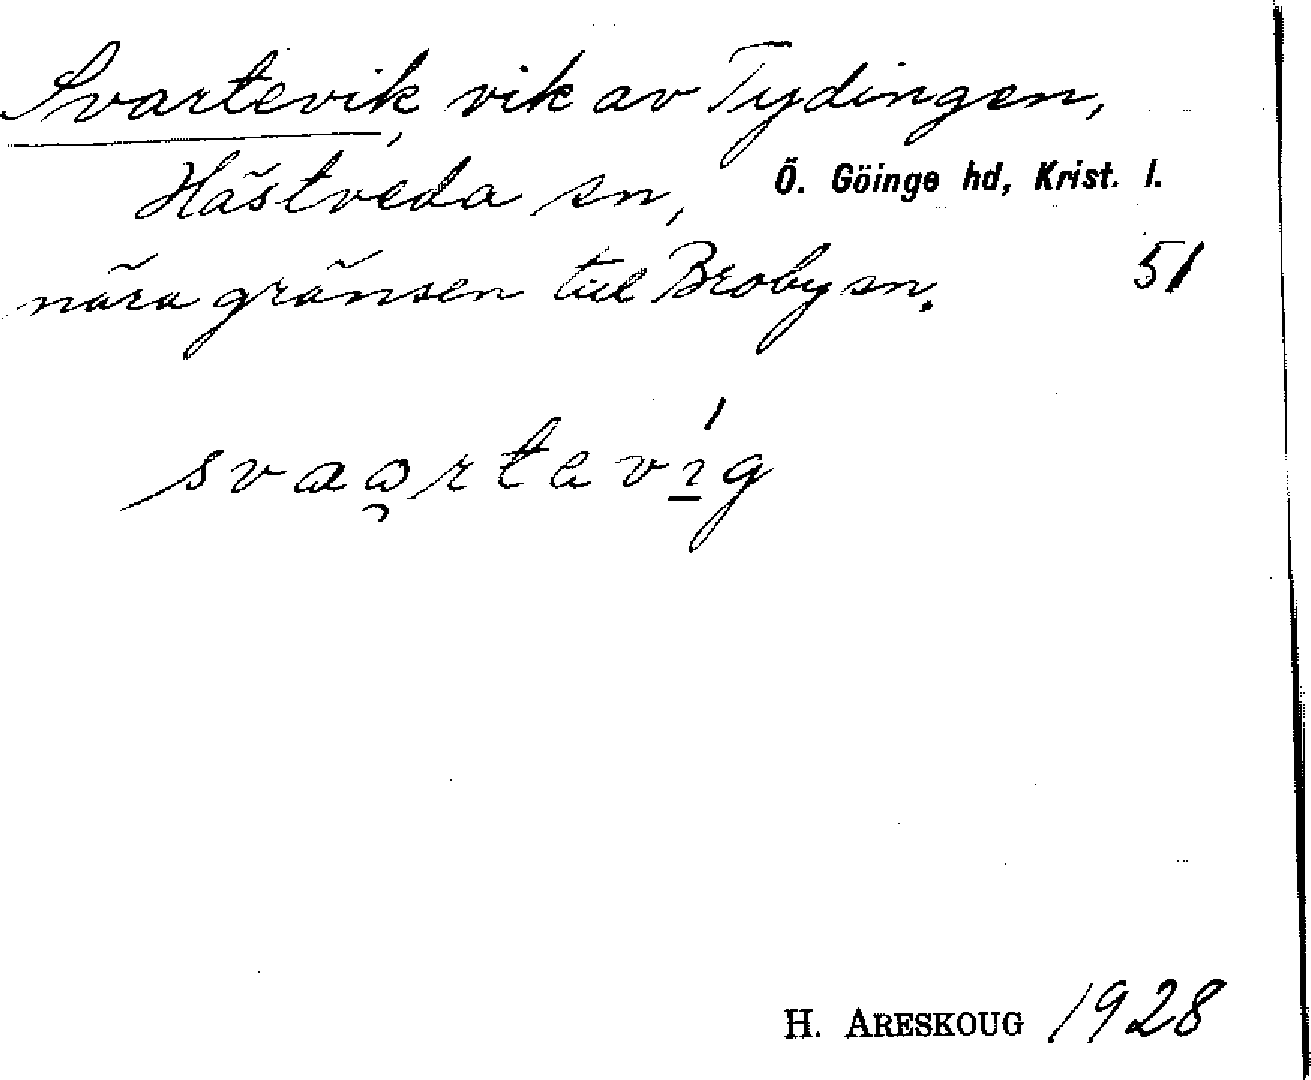 Svartevik, vik av Tydingen,
Hästveda sn, Ö. Göinge hd, Krist. l.
nära gränsen till Broby sn. 51
H. ARESKOUG 1928